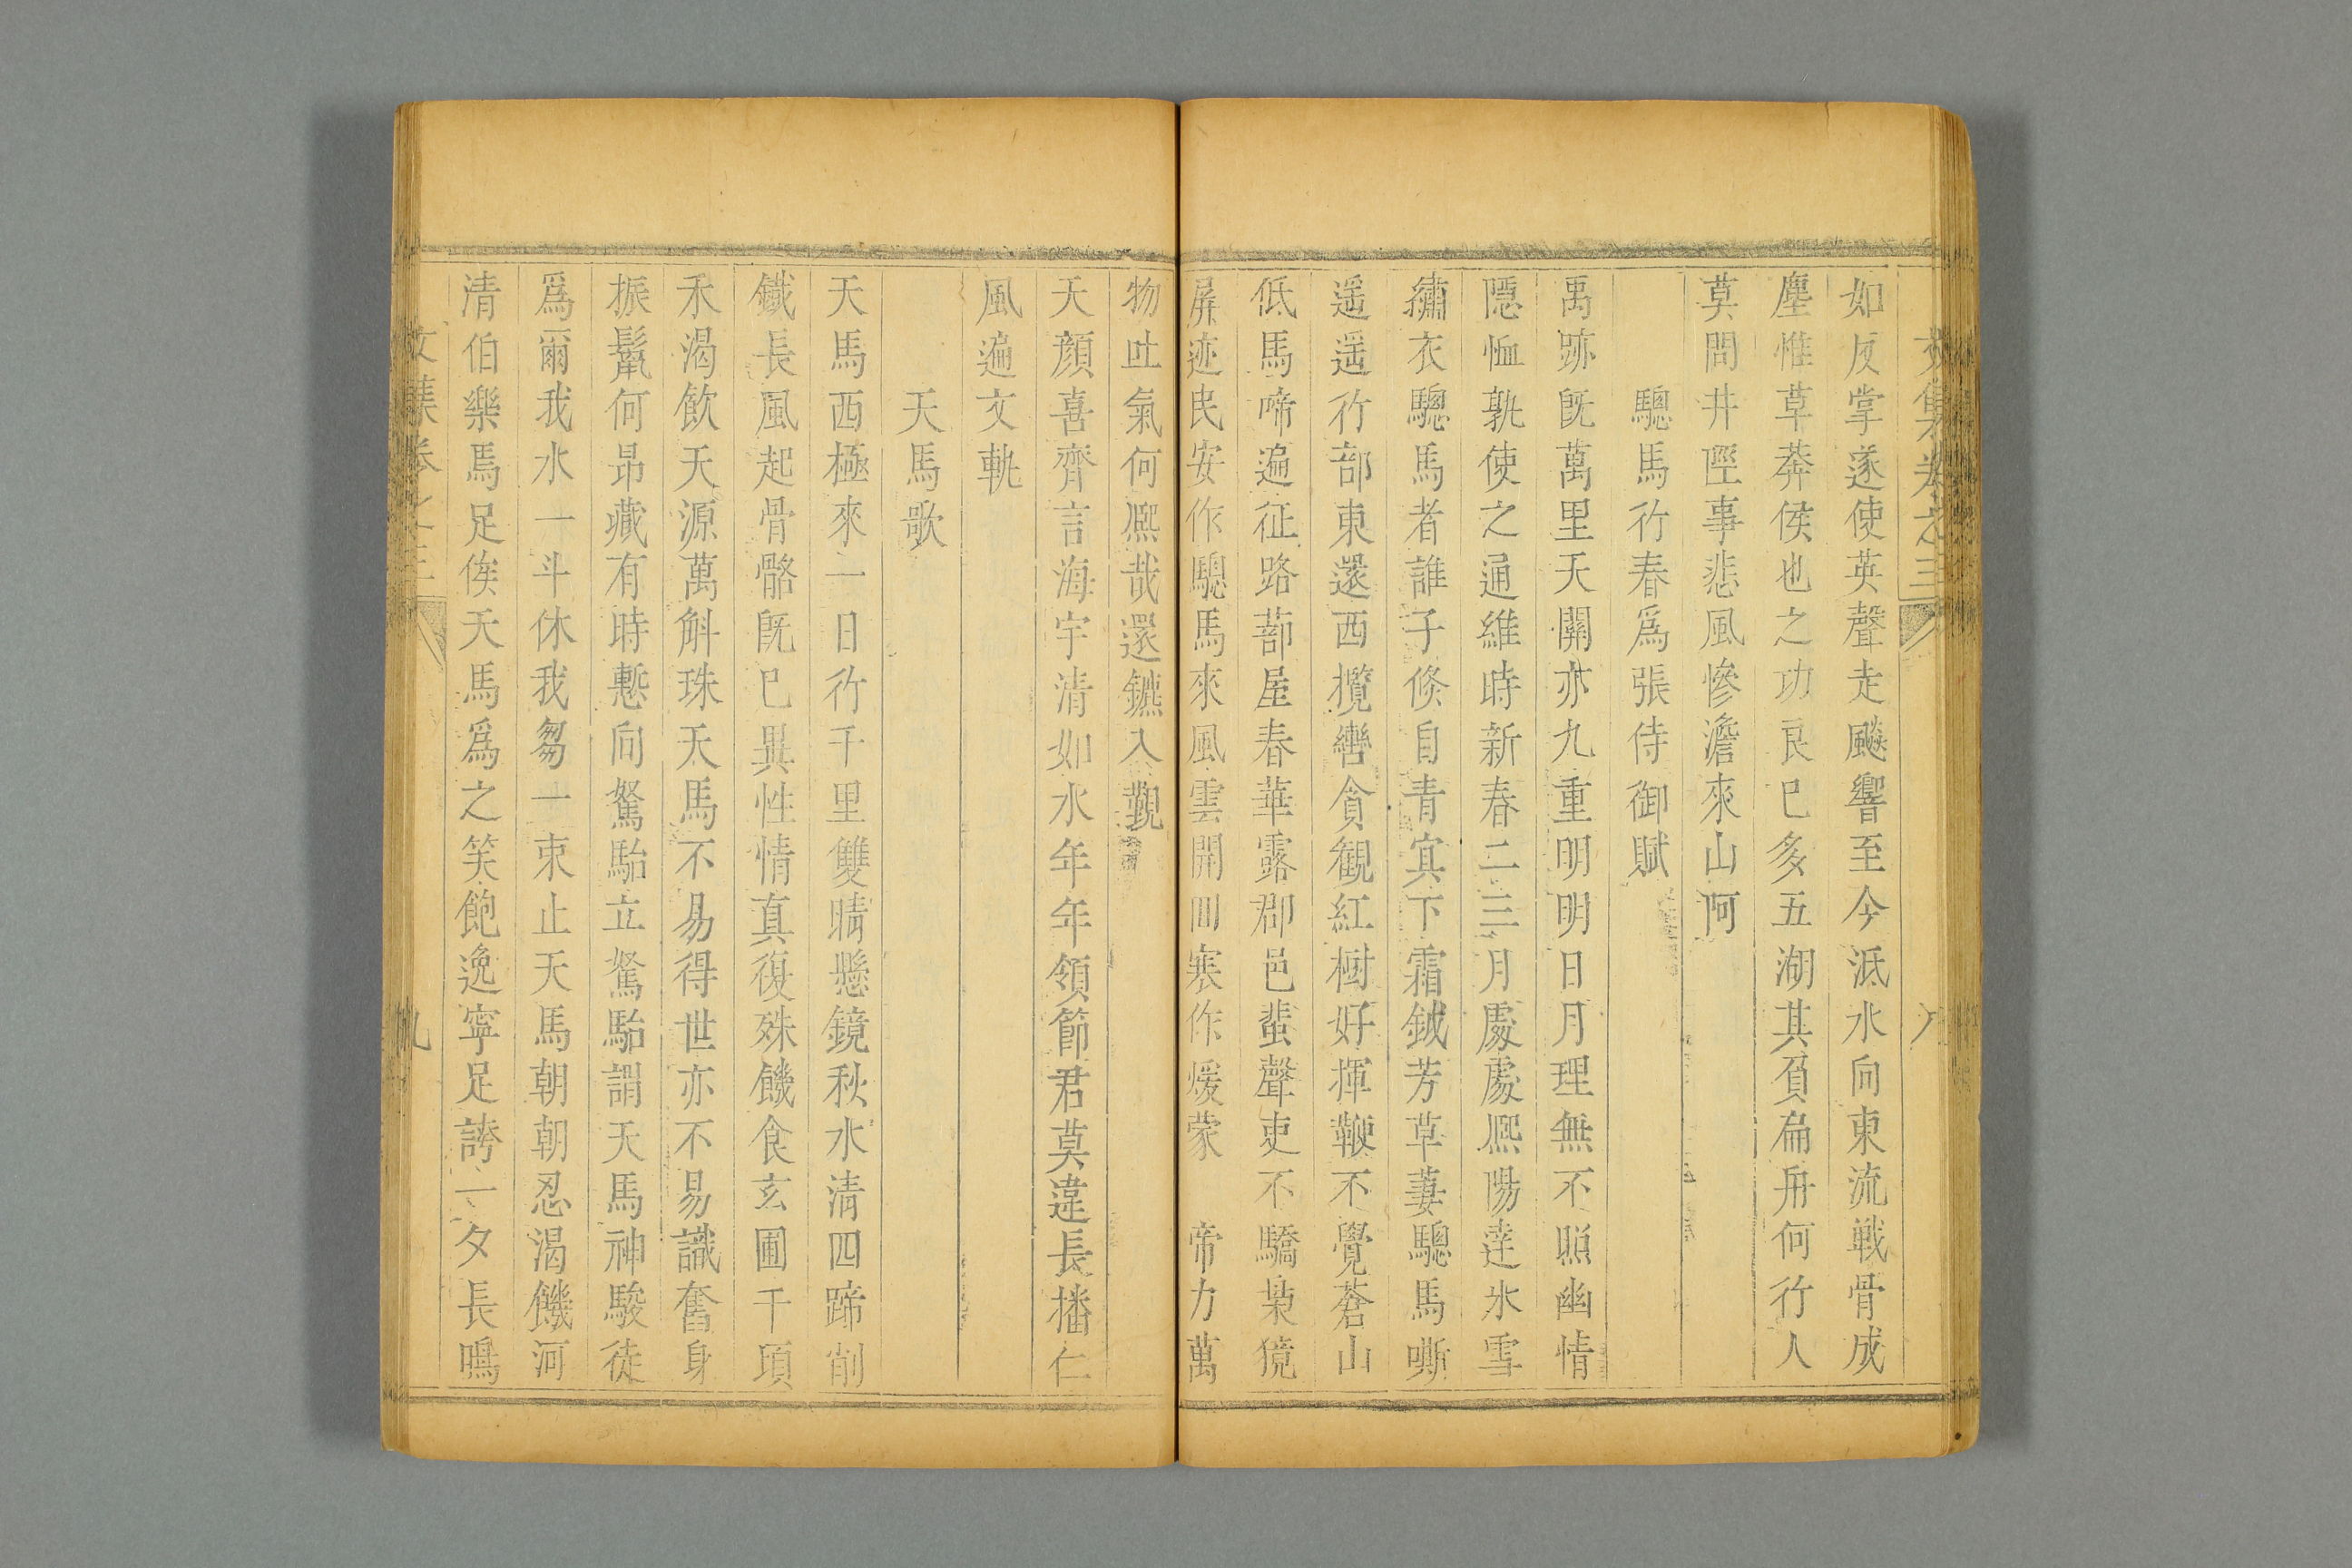 文集卷之三
八
如反掌遂使英聲走飈響至今泜水向東流戦骨成
塵惟草莽侯也之功良已多五湖其負扁舟何行人
莫問井陘事悲風慘澹來山阿
驄馬行春爲張侍御賦
禹跡既萬里天關亦九重明明日月理無不照幽情
隱恤孰使之通維時新春二三月處處熈陽達氷雪
繡衣驄馬者誰子倐自青冥下霜鉞芳草萋萋驄馬嘶
遥遥行部東還西攬轡貪観紅樹好揮鞭不覺蒼山
低馬啼遍征路蔀屋春華露郡邑蜚聲吏不驕梟獍
屏迹民安作驄馬來風雲開回寒作煖蒙　帝力萬
物吐氣何熈哉還鑣入覲
天顔喜齊言海宇清如水年年領節君莫違長播仁
風遍文軌
天馬歌
天馬西極來一日行千里雙睛懸鏡秋水清四蹄削
鐵長風起骨骼既已異性情真復殊饑食玄圃千頃
禾渴飲天源萬斛珠天馬不易得世亦不易識奮身
振鬣何昂藏有時慙向駑駘立駑駘謂天馬神駿徒
爲爾我水一斗休我芻一束止天馬朝朝忍渴饑河
清伯樂焉足俟天馬爲之笑飽逸寧足誇一夕長鳴
文集卷之三
九